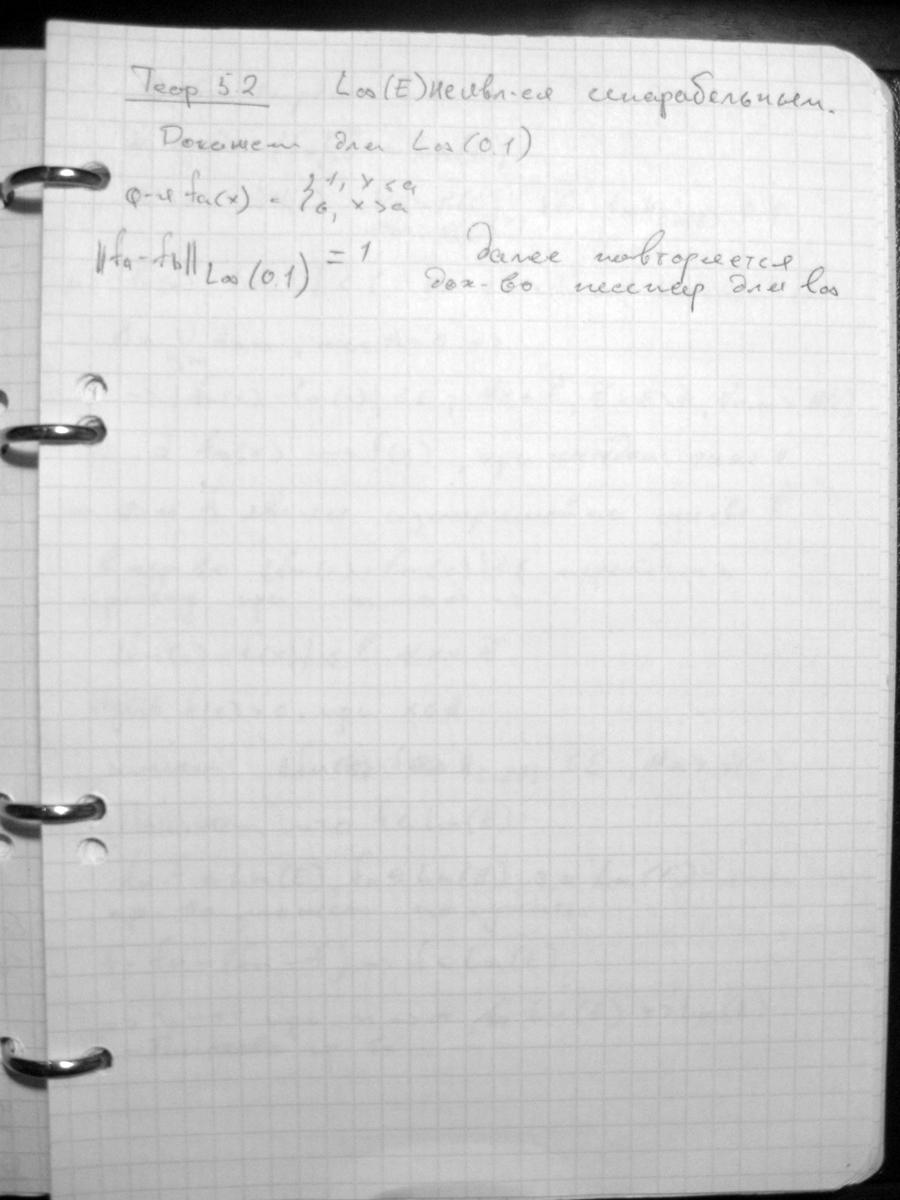 Теор 5.2 L∞(E) не явл-ся сепарабельным.
Докажем для L∞(0,1)
ф-я fa(x) = { 1, x<a
0, x>a
||fa-fb|| L∞(0,1) = 1 далее повторяется
док-во несепар для l∞